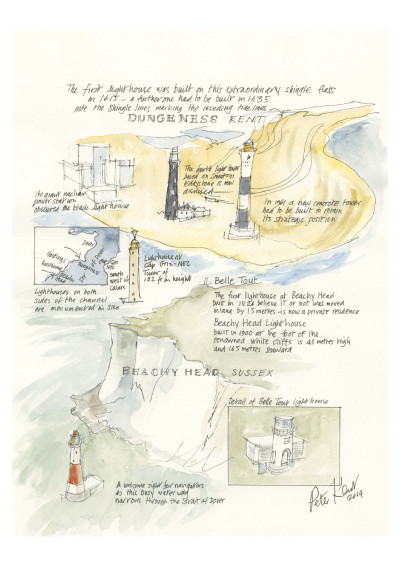 The first lighthouse was built on this extraordinary shingle flats
in 1615 - a further one had to be built in 1635
note the Shingle lines marking the receding tide lines
DUNGENESS KENT
The fourth light tower
based on Smeatons
Eddystone is now
disused
the giant nuclear
power station
obscured the black lighthouse
In 1961 a new concrete tower
had to be built to retain
its strategic position
Dover
Hastings
South
West of
Calais
Lighthouse at
Cap Gris-NEZ
Tower of
102 ft in height
Lighthouses on both
sides of the channel
are monumental in size
Belle Tout
The first lighthouse at Beachy Head
built in 1828 believe it or not was moved
inland by 15 metres - is now a private residence
Beachy Head Lighthouse
built in 1900 at the foot of the
renowned white cliffs is 43 metres high
and 165 metres seaward
BEACHY HEAD SUSSEX
Detail of Belle Tout lighthouse
A welcome sight for navigators
as this busy waterway
narrows through the Strait of Dover
Peter
2019